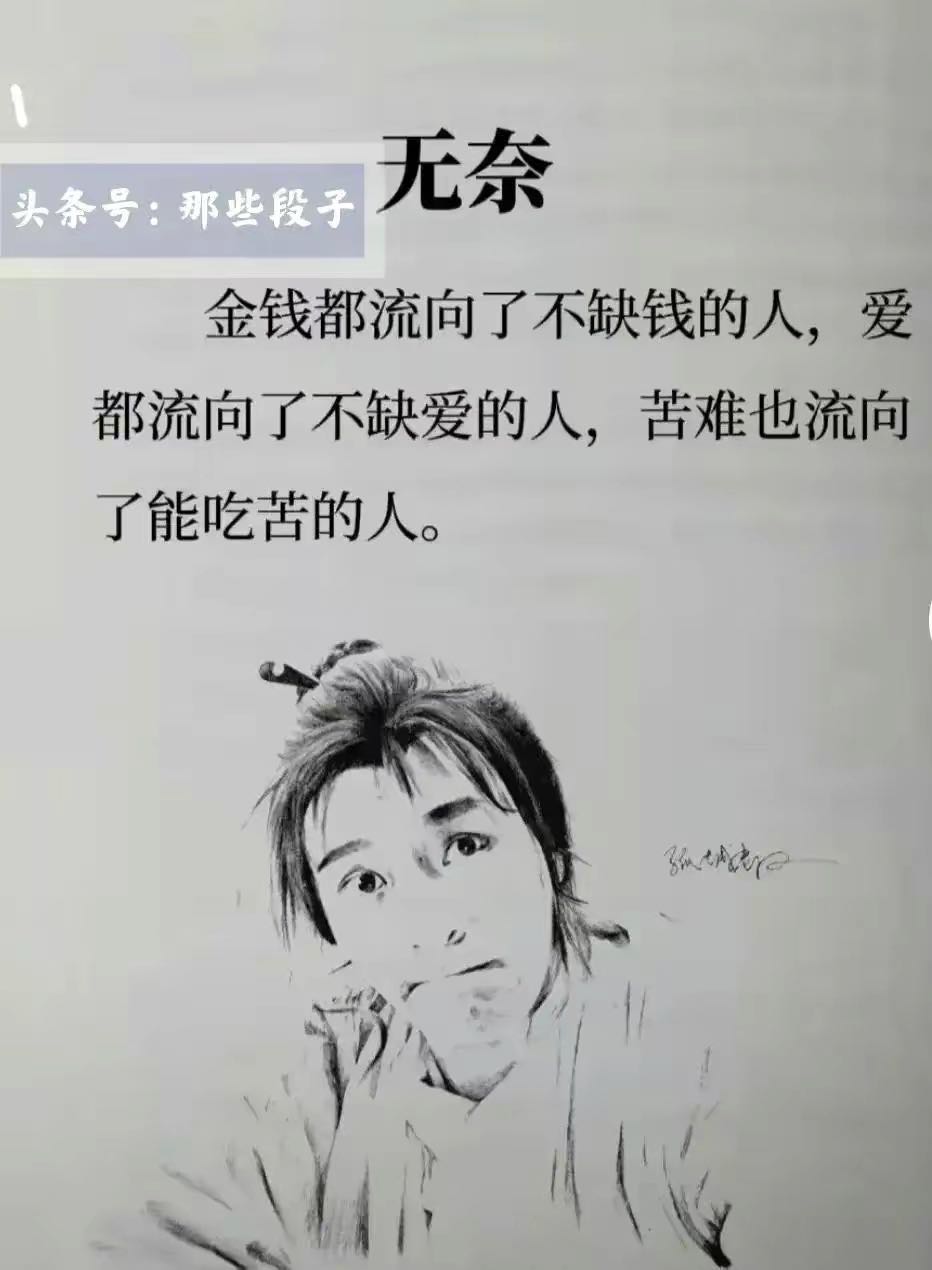 无奈
头条号：那些段子
金钱都流向了不缺钱的人，爱
都流向了不缺爱的人，苦难也流向
了能吃苦的人。